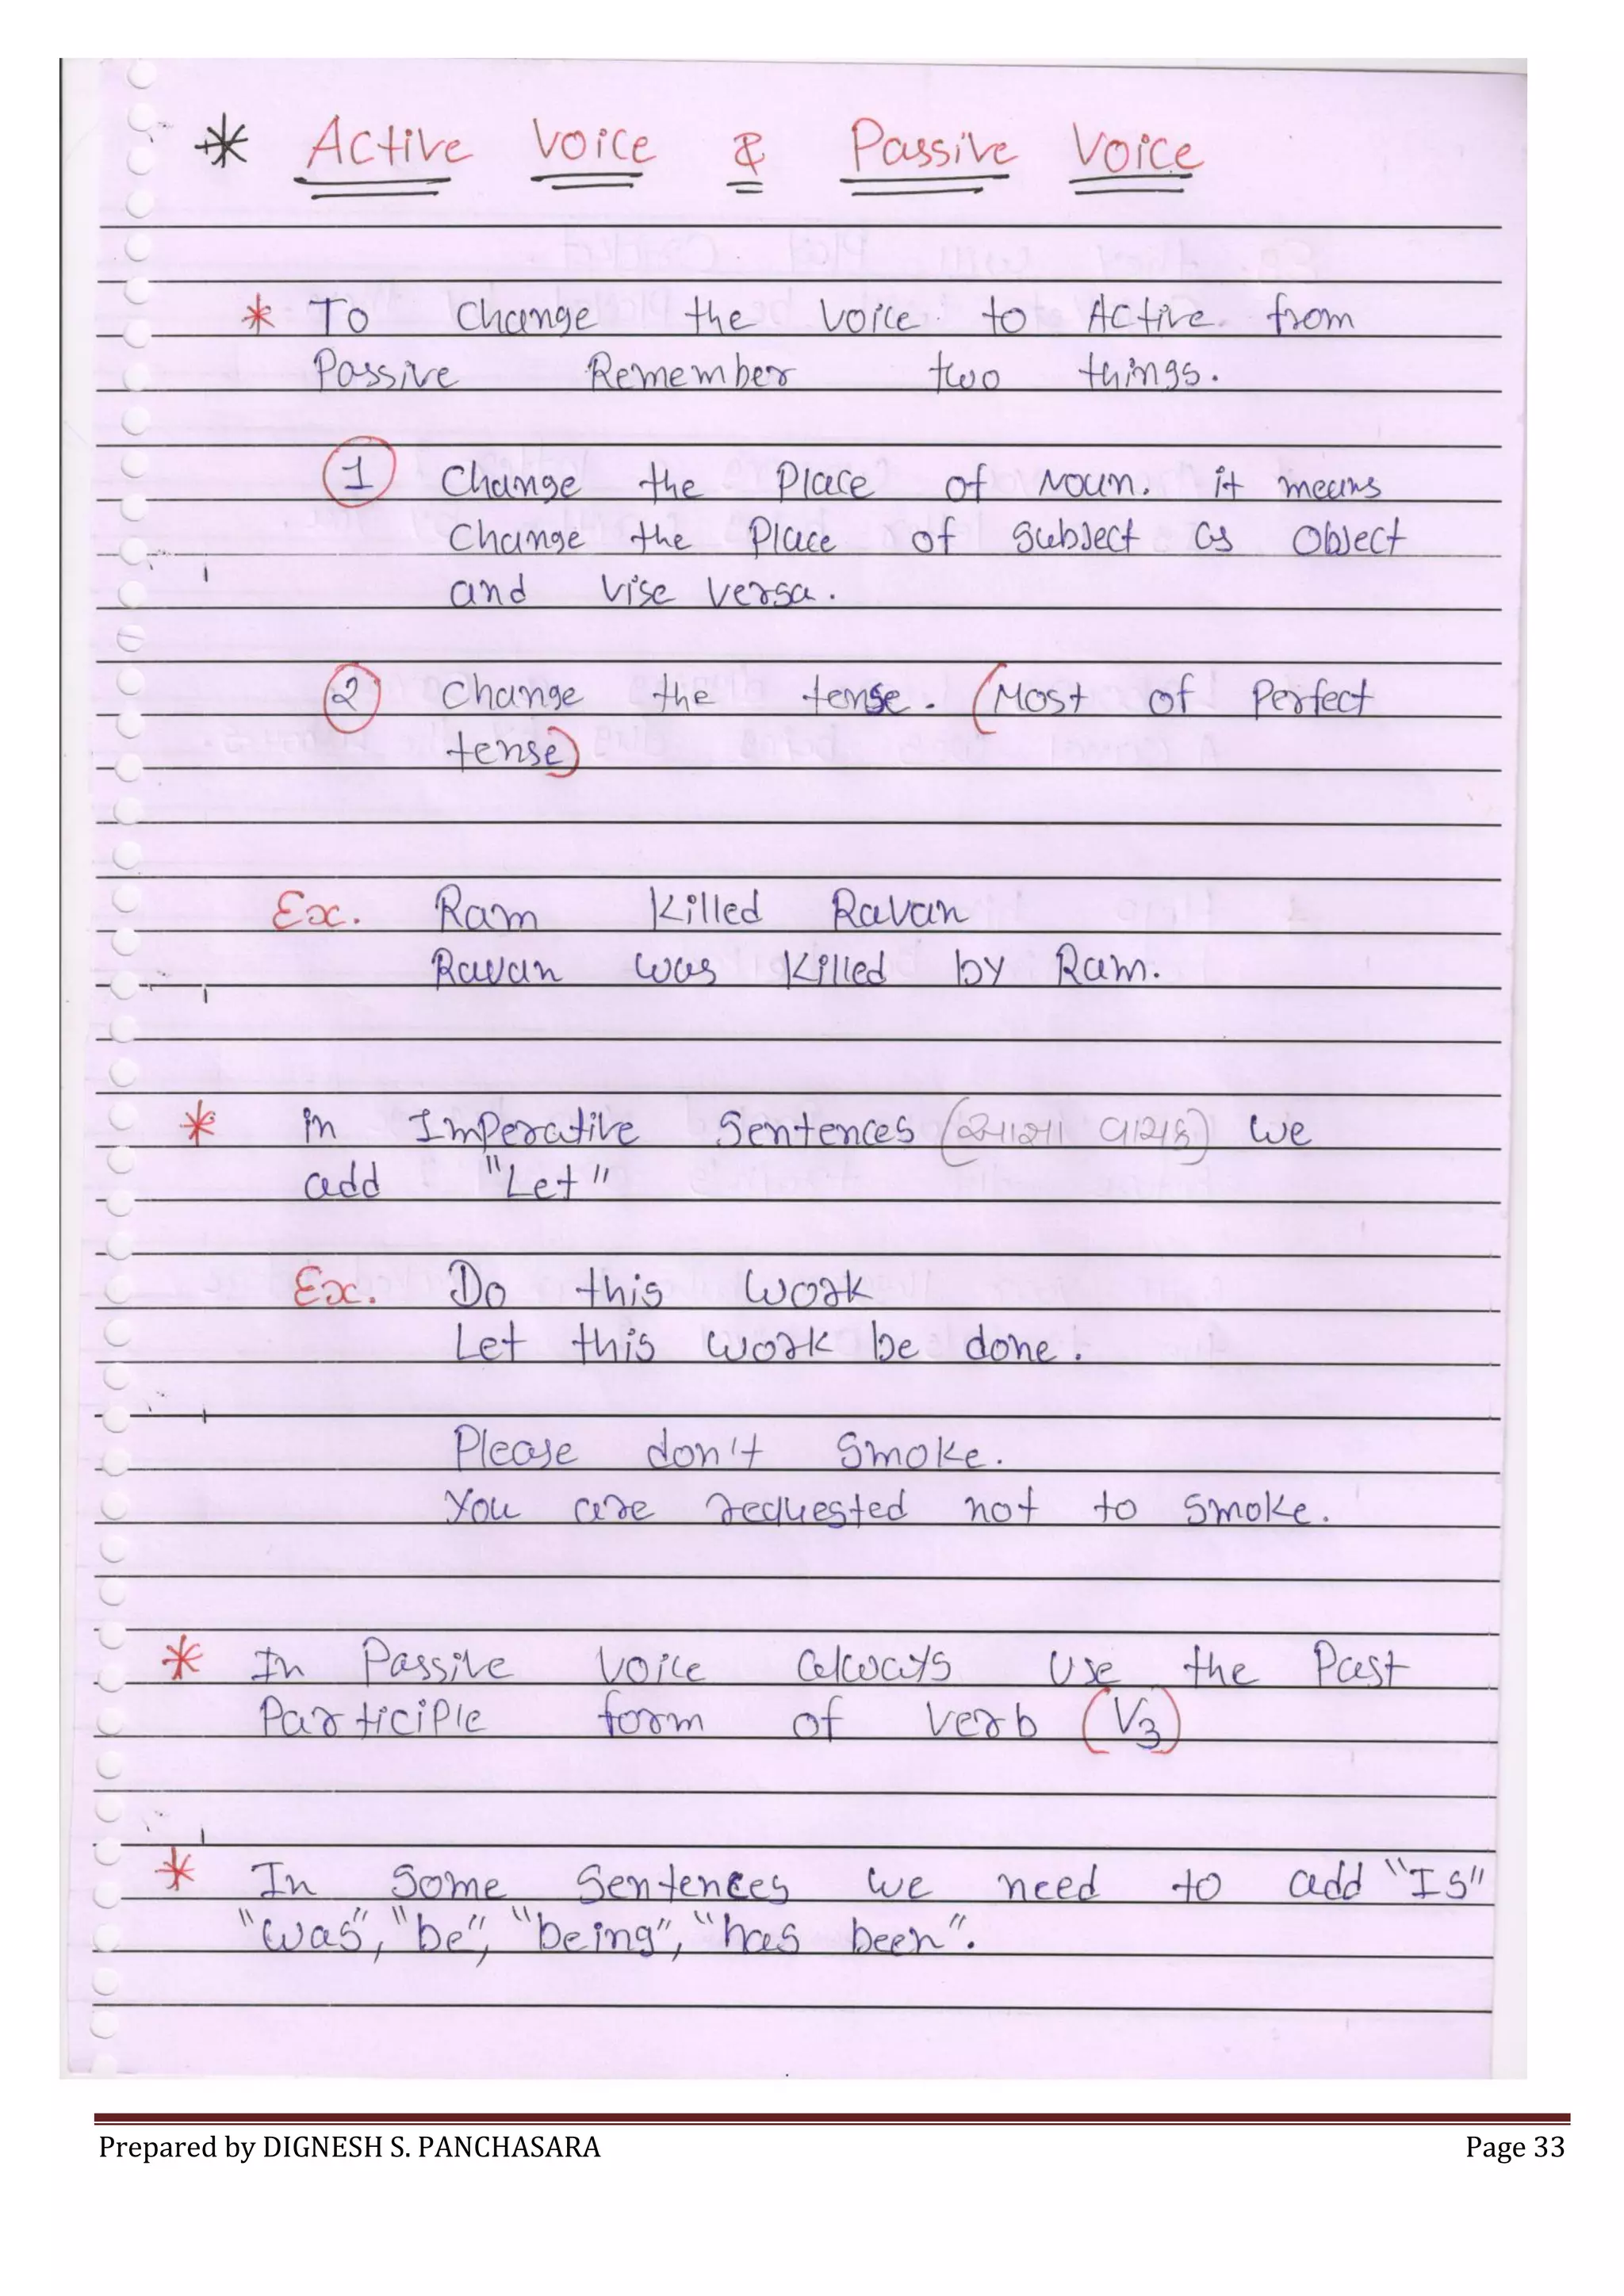 * Active Voice & Passive Voice
* To change the voice to Active from
Passive Remember two things.
1 Change the Place of Noun. it means
Change the Place of subject as object
and vise versa.
2 Change the tense. (Most of Perfect
tense)
Ex. Ram killed Ravan
Ravan was killed by Ram.
* in Imperative Sentences (આજ્ઞા વાચક) we
add "Let"
Ex. Do this work
Let this work be done.
Please don't smoke.
You are requested not to smoke.
* In Passive voice always use the Past
Participle form of verb (V3)
* In some sentences we need to add "IS"
"was", "be", "being", "has been".
Prepared by DIGNESH S. PANCHASARA Page 33